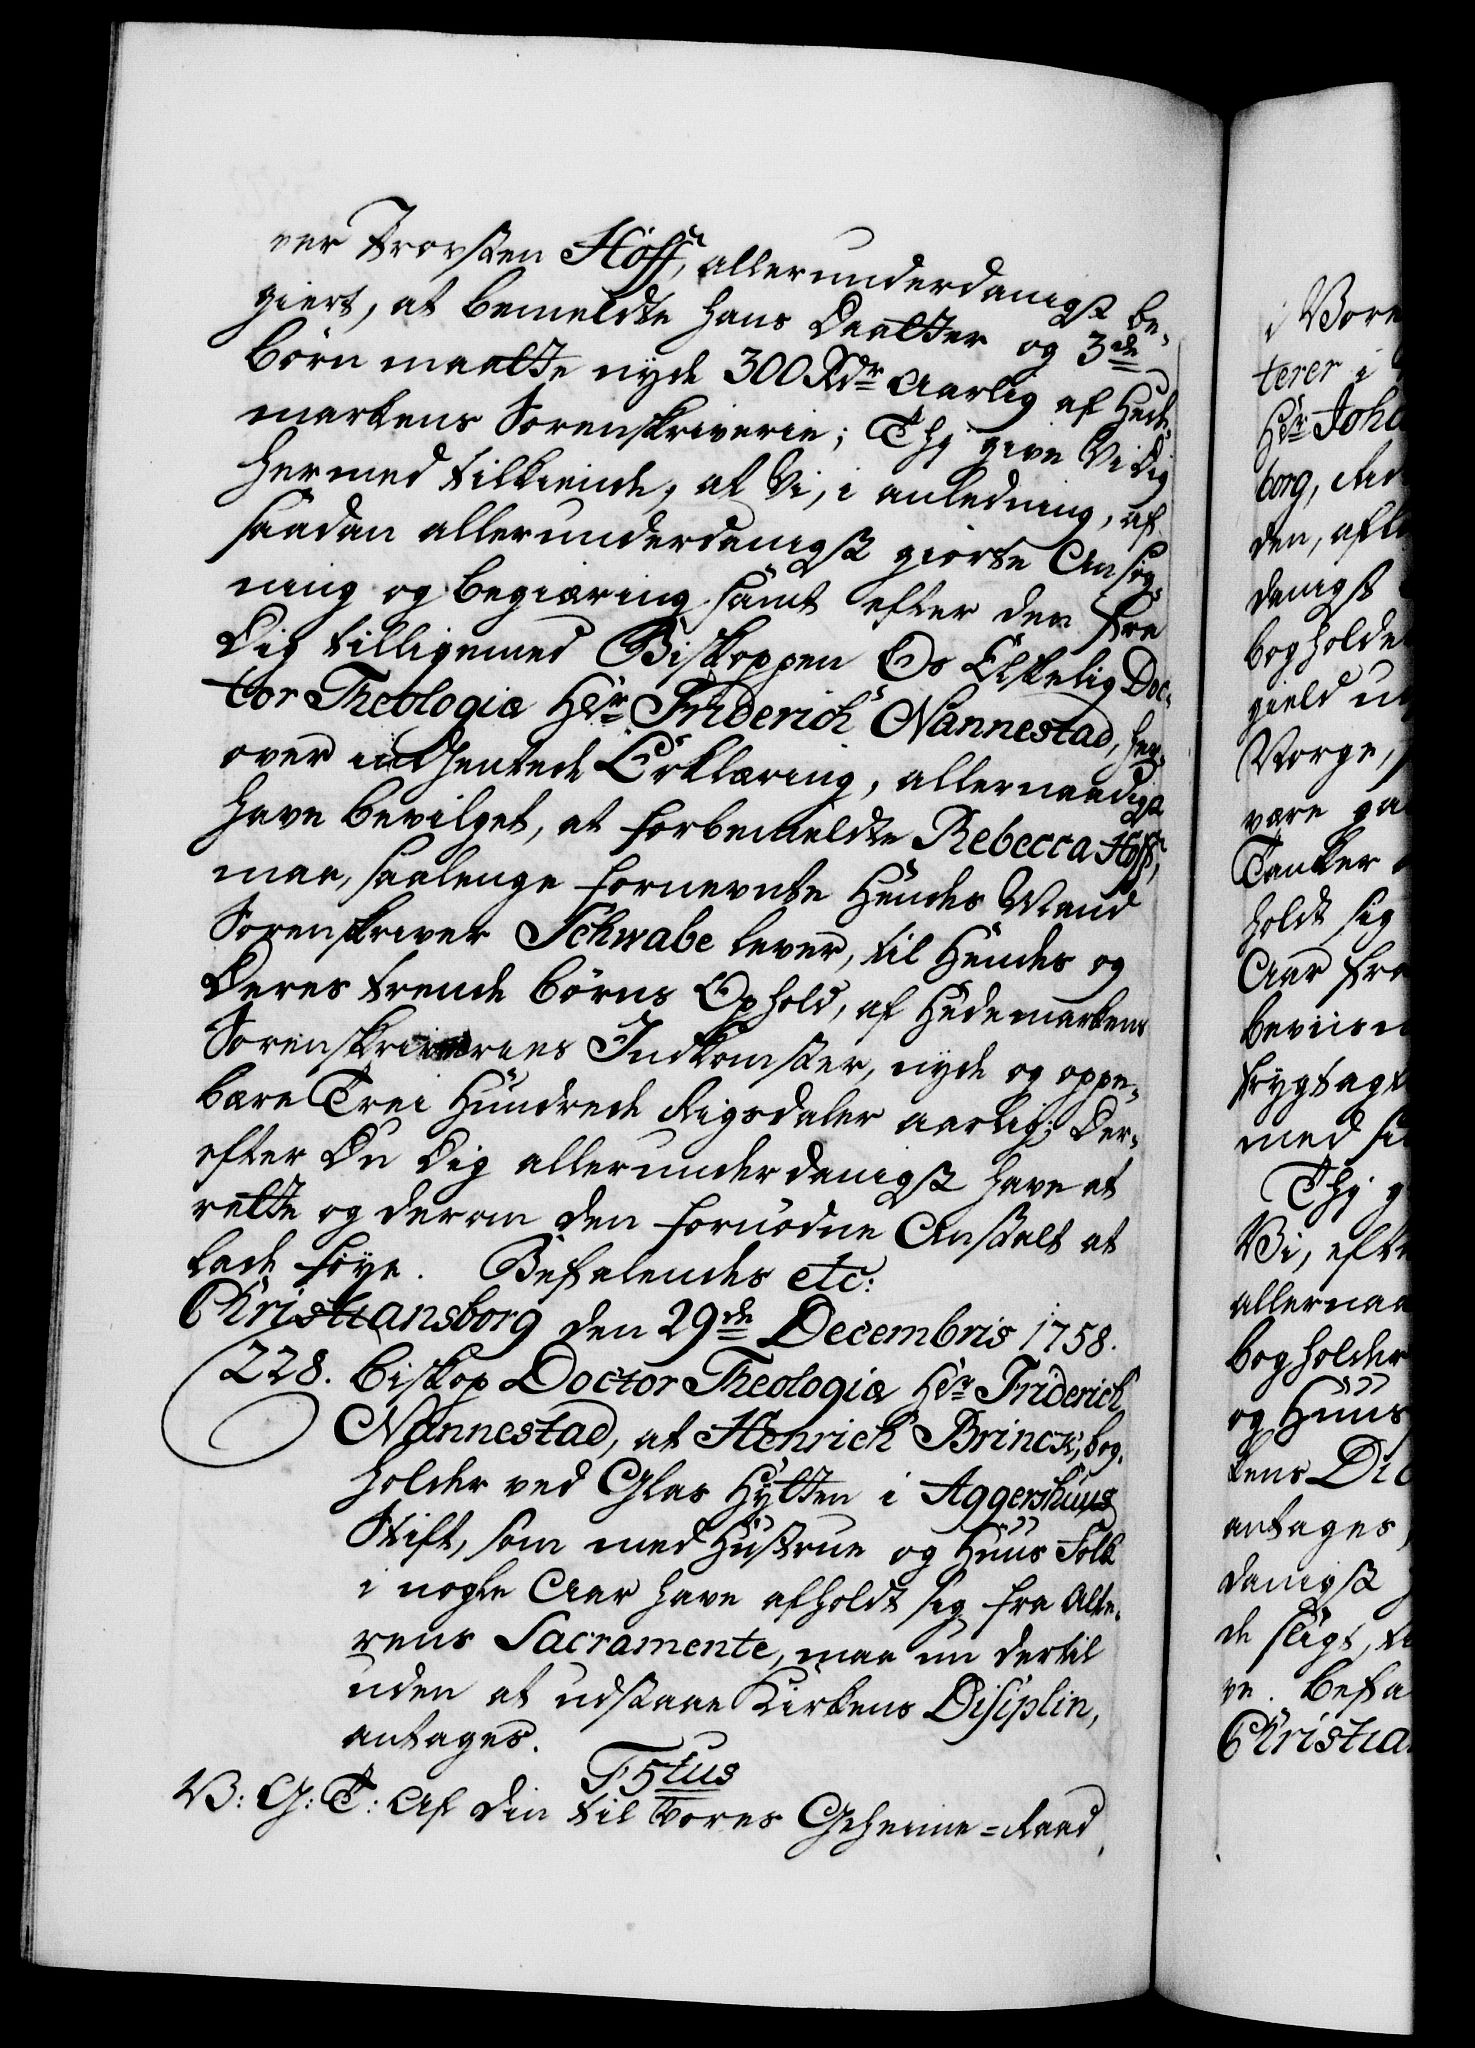 ver Trorsken Höff, allerunderdanigst be-
giert, at bemeldte hans Daatter og 3de
börn maatte nyde 300 Rdr Aarlig af Hede-
markens Sorenskriverie; Thj give Vi Dig
hermed tilkiende, at Vi, i anledning, af
saadan allerunderdanigst giorte Ansög-
ning og begiæring samt efter den fra
Dig tilligemed Biskoppen Os Elskelig Doc-
tor Theologiæ Hr. Friderich Nannestad, her-
over indhentede Erklæring, allernaadigst
have bevilget, at forbemeldte Rebecca Höff,
maa, saalenge fornevnte Hendes Mand
Sorenskriver Schwabe lever, til Hendes og
Deres trende börns Ophold, af Hedemarkens
Sorenskriveries Indkomster, nyde og oppe-
bære Trei Hundrede Rigsdaler aarlig; Der-
efter Du Dig allerunderdanigst have at
rette og derom den fornödne Anstalt at
lade föye. Befalendes etc:
Christiansborg den 29de Decembris 1758.
228. Biskop Doctor Theologiæ Hr. Friderich
Nannestad, at Henrich Brinck, bog-
holder ved Glas Hytten i Aggershuus
Stift, som med Hustrue og Huus Folk
i nogle Aar have afholdt sig fra Alte-
rens Sacramente, maa nu dertil
uden at udstaae Kirkens Disiplin,
antages.
F5tus
V: G: T: Af Din til Vores Geheime-Raad,
i Vore
terer i
Hr. Joha
borg,
den,
danigst
bogholde
gield
Norge,
være
Tanker
holdt sig
Aar fra
beviis
frygtagt
med
Thj g
Vi, efte
allernaa
bogholder
og Huus
kens Di
antages,
danigst
de sligt,
ve. Befa
Christia